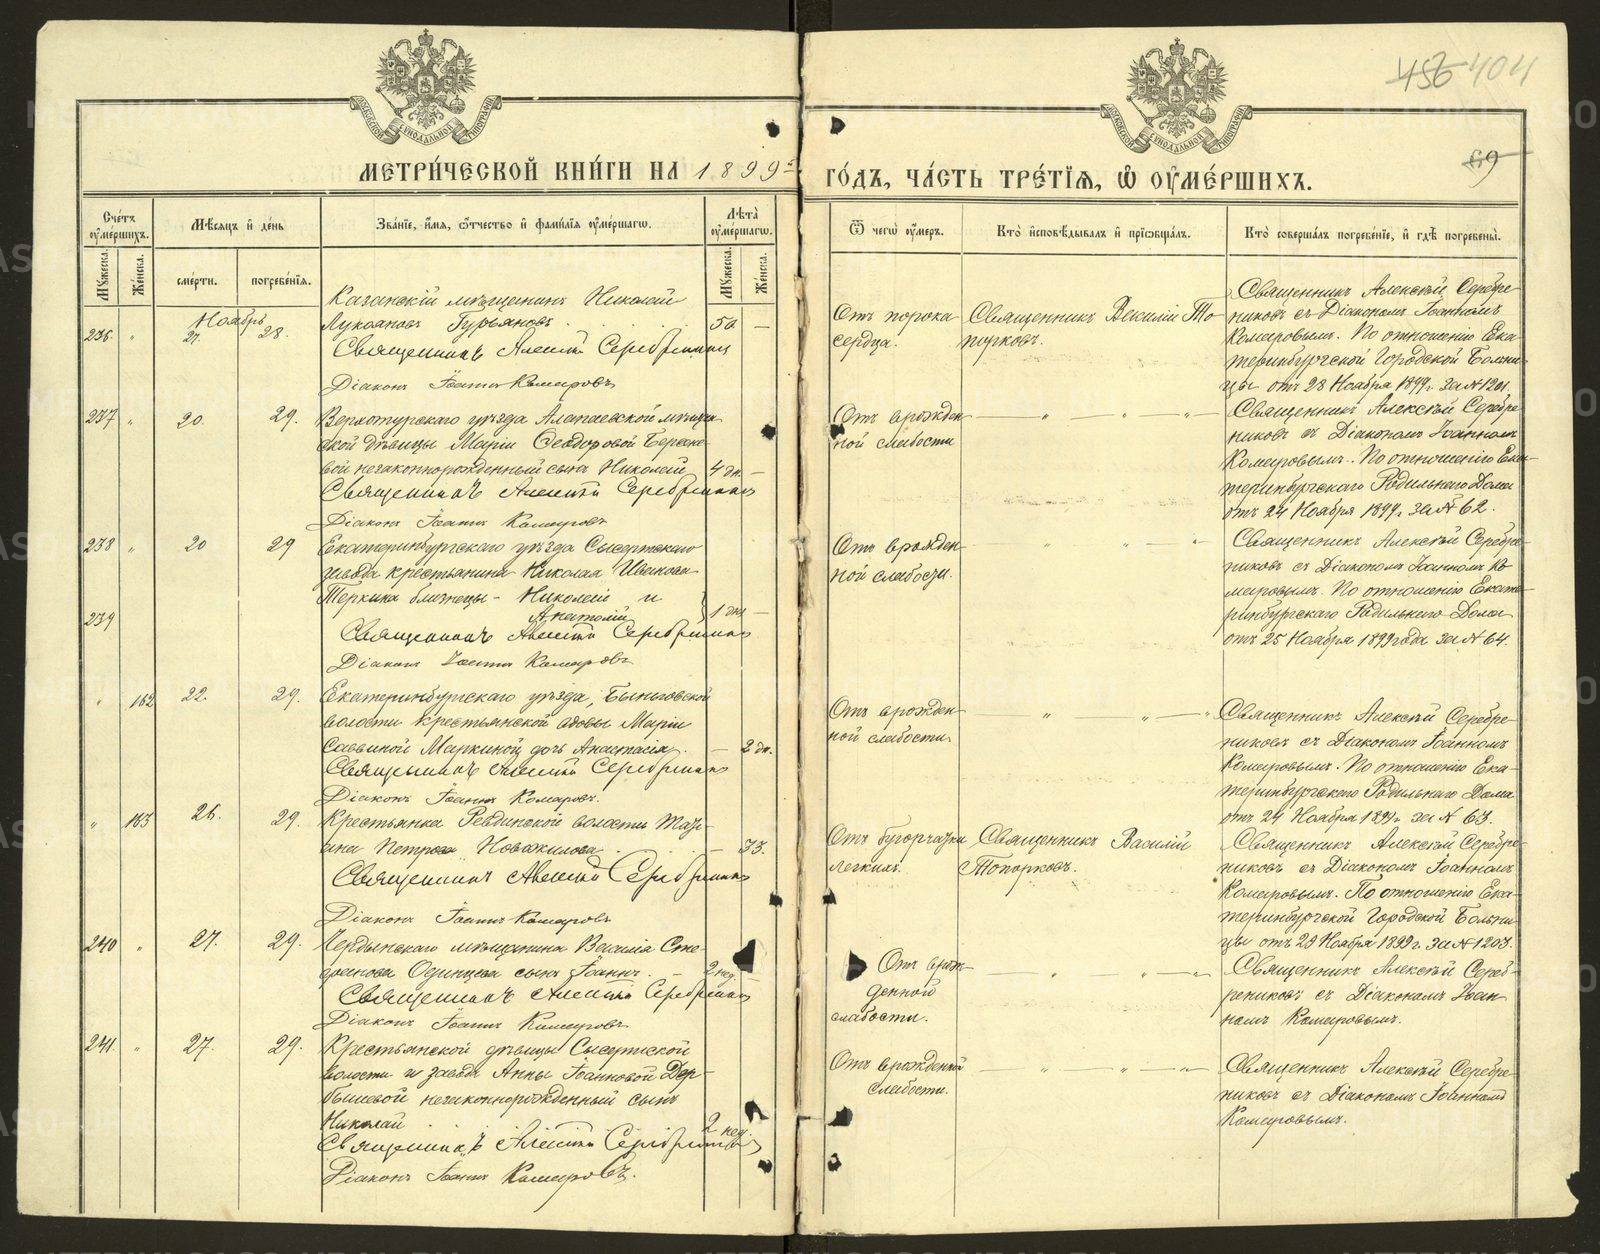 456 404
69
МЕТРИ́ЧЕСКОЙ КНИ́ГИ НА 1899
ГО́ДЪ, ЧА́СТЬ ТРЕ́ТІѦ, Ѡ҆ ОУ҆МЕ́РШИХЪ.
Сче́тъ оу҆ме́ршихъ.
Мѣ́сяцъ и҆ де́нь
Зва́ніе, и҆́мѧ, ѻ҆́тчество и҆ фами́лїѧ оу҆ме́ршагѡ.
Лѣ́та оу҆ме́ршагѡ.
Ѿ чегѡ̀ оу҆́меръ.
Кто̀ и҆сповѣ́дывалъ и҆ прїѡбща́лъ.
Кто̀ соверша́лъ погребе́нїе, и҆ гдѣ̀ погребены̀.
Мꙋ́жеска.
Же́нска.
сме́рти.
погребе́нїѧ.
Мꙋ́жеска.
Же́нска.
Казанскій мѣщанинъ Николай
236. " Ноябрь 27. 28. Лукояновъ Гурьяновъ 50 —
Священникъ Алексѣй Серебрениковъ
Діаконъ Іоаннъ Комаровъ
Отъ порока
сердца.
Священникъ Василій То-
порковъ.
Священникъ Алексѣй Серебре-
никовъ съ Діакономъ Іоанномъ
Комаровымъ. По отношенію Ека-
теринбургской Городской Больни-
цы отъ 28 Ноября 1899 г. за № 1201.
237 " 20. 29. Верхотурскаго уѣзда Алапаевской мѣщан-
ской дѣвицы Маріи Ѳеодоровой
незаконнорожденный сынъ Николай 4 дн. —
Священникъ Алексѣй Серебрениковъ
Діаконъ Іоаннъ Комаровъ
Отъ врожден-
ной слабости
— " — " —
Священникъ Алексѣй Серебре-
никовъ съ Діакономъ Іоанномъ
Комаровымъ. По отношенію Ека-
теринбургскаго Родильнаго Дома
отъ 24 Ноября 1899 г. за № 62.
238 " 20 29 Екатеринбургскаго уѣзда Сысертскаго
завода крестьянина Николая Иванова
Теркина близнецы - Николай и
239 Анатолій 1 дня —
Священникъ Алексѣй Серебрениковъ
Діаконъ Іоаннъ Комаровъ
Отъ врожден-
ной слабости.
— " " — "
Священникъ Алексѣй Серебре-
никовъ съ Діакономъ Іоанномъ Ко-
маровымъ. По отношенію Екате-
ринбургскаго Родильнаго Дома
отъ 25 Ноября 1899 года за № 64.
" 162 22. 29. Екатеринбургскаго уѣзда, Быньговской
волости крестьянской вдовы Маріи
Саввиной Маркиной дочь Анастасія. — 2 дн.
Священникъ Алексѣй Серебрениковъ
Діаконъ Іоаннъ Комаровъ.
Отъ врожден-
ной слабости
" " — "
Священникъ Алексѣй Серебре-
никовъ съ Діакономъ Іоанномъ
Комаровымъ. По отношенію Ека-
теринбургскаго Родильнаго Дома
отъ 24 Ноября 1899 г. за № 63.
" 163 26. 29. Крестьянка Ревдинской волости Мар-
Петрова Новожилова — 33.
Священникъ Алексѣй Серебрениковъ
Діаконъ Іоаннъ Комаровъ
Отъ бугорчатки
легкихъ.
Священникъ Василій
Топорковъ.
Священникъ Алексѣй Серебре-
никовъ съ Діакономъ Іоанномъ
Комаровымъ. По отношенію Ека-
теринбургской Городской Больни-
цы отъ 29 Ноября 1899 г. за № 1203.
240 " 27. 29. Чердынскаго мѣщанина Василія Сте-
фанова Одинцова сынъ Іоаннъ. — 2 нед.
Священникъ Алексѣй Серебрениковъ
Діаконъ Іоаннъ Комаровъ
Отъ врож-
денной
слабости.
— " — " — "
Священникъ Алексѣй Сереб-
рениковъ съ Діакономъ Іоан-
номъ Комаровымъ.
241. " 27. 29. Крестьянской дѣвицы Сысертской
волости и завода Анны Іоанновой Дер-
бышевой незаконнорожденный сынъ
Николай 2 нед.
Священникъ Алексѣй Серебрениковъ
Діаконъ Іоаннъ Комаровъ.
Отъ врожденной
слабости.
— " — " — "
Священникъ Алексѣй Серебре-
никовъ съ Діакономъ Іоанномъ
Комаровымъ.